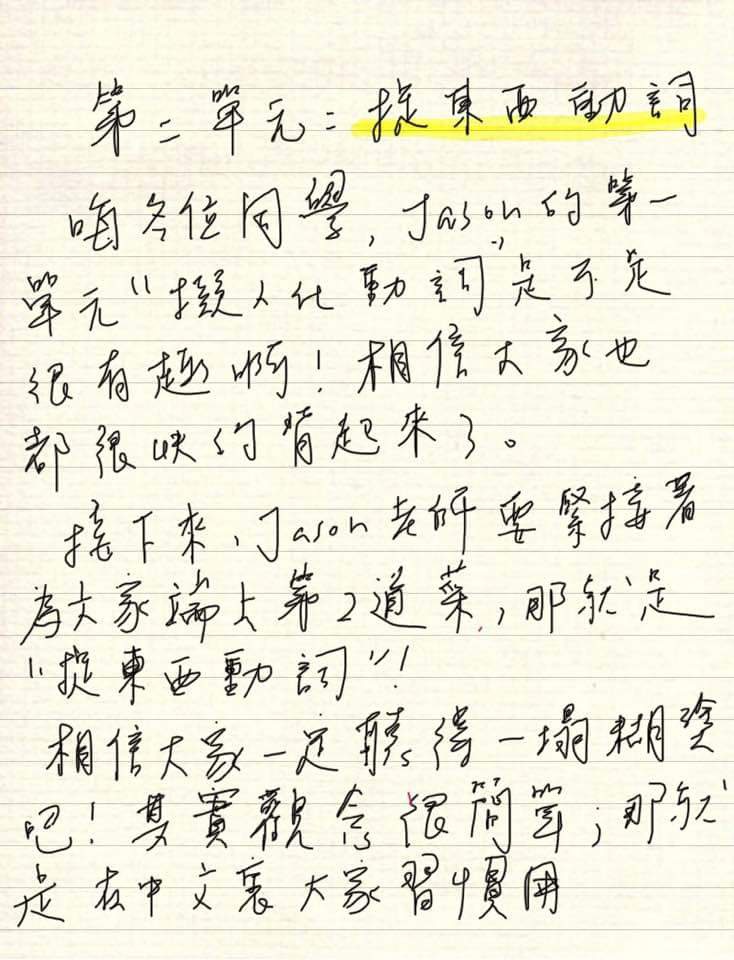 第二單元：提東西動詞
咱各位同學，Jason的第一
單元"擬人化動詞"是不是
很有趣啊！相信大家也
都很快的背起來了。
接下來，Jason老師要緊接著
為大家端上第2道菜，那就是
"提東西動詞"！
相信大家一定聽得一塌糊塗
吧！其實觀念很簡單，那就
是在中文裏大家習慣用